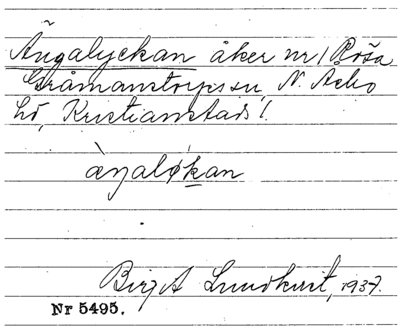 Ängalyckan åker nr 1 Röša
Gråmanstorps sn, N. Åsbo
hd, Kristianstads l.
àŋaløkan
Birg A Lundkvist, 1937.
Nr 5495.